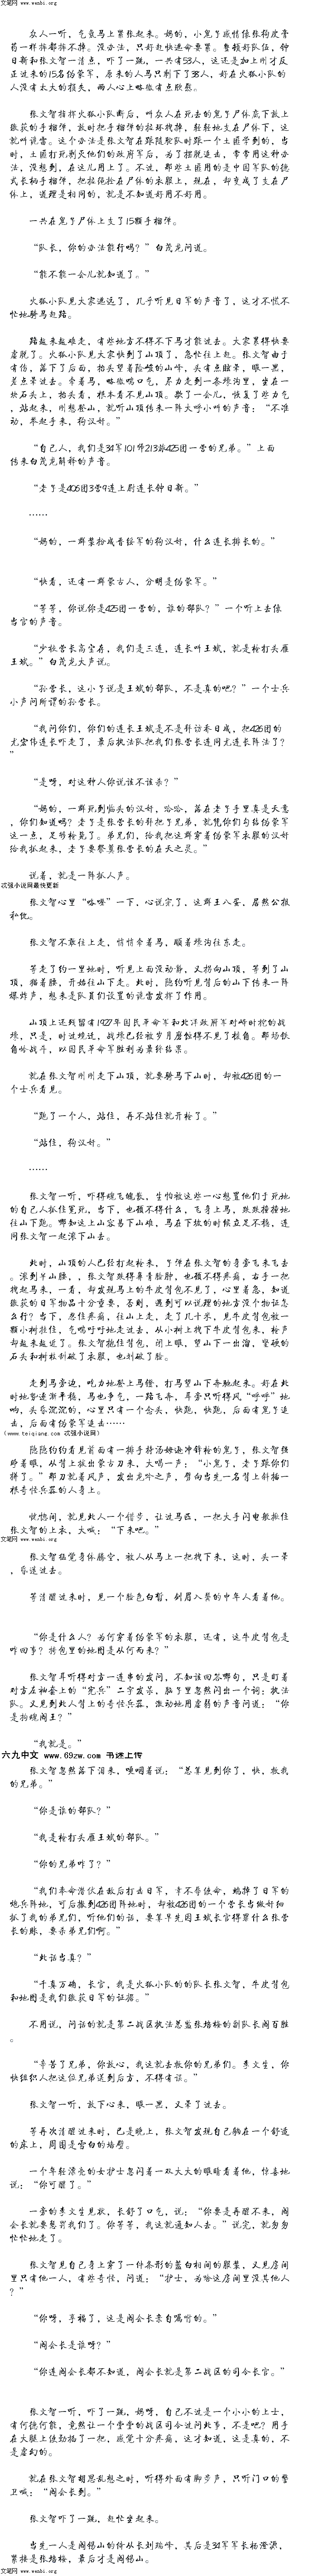 文笔网 www.wenbi.org
众人一听，气氛马上紧张起来。妈的，小鬼子感情像张狗皮膏
药一样甩都甩不掉。没办法，只好赶快逃命要紧。整顿好队伍，钟
日新和张文智一清点，吓了一跳，一共有53人，这还是加上刚才反
正过来的15名伪蒙军，原来的人马只剩下了38人，好在火狐小队的
人没有太大的损失，两人心上略微有点欣慰。
张文智指挥火狐小队断后，听众人在死去的鬼子尸体底下放上
缴获的手榴弹，放时把手榴弹的拉环拽掉，轻轻地支在尸体下，这
就叫诡雷。这个办法是张文智在跟随剿匪时跟一个土匪学到的，当
时，土匪打死剿灭他们的政府军后，为了摆脱追击，常常用这种办
法，没想到，在这儿用上了。不过，那些土匪用的是中国军队的德
式长柄手榴弹，把拉绳拴在尸体的衣服上，现在，却变成了支在尸
体上，道理是相同的，就是不知道好用不好用。
一共在鬼子尸体上支了15颗手榴弹。
“队长，你的办法能行吗？”白茂龙问道。
“能不能一会儿就知道了。”
火狐小队见大家退远了，几乎听见日军的声音了，这才不慌不
忙地骑马赶路。
路越来越难走，有些地方不得不下马才能过去。大家累得快要
虚脱了。火狐小队见大家快到了山顶了，急忙往上赶。张文智由于
有伤，落下了后面，抬头望着险峻的山峰，头有点眩晕，眼一黑，
差点晕过去。牵着马，略微喘口气，努力走到一条壕沟里，坐在一
块石头上，抬头看，根本看不见山顶。歇了一会儿，恢复了些力气
，站起来，刚想登山，就听山顶传来一阵大呼小叫的声音：“不准
动，举起手来，狗汉奸。”
“自己人，我们是34军101师213旅425团一营的兄弟。”上面
传来白茂龙解释的声音。
“老子是406团3营9连上尉连长钟日新。”
……
“妈的，一群装扮成晋绥军的狗汉奸，什么连长排长的。”
“快看，还有一群蒙古人，分明是伪蒙军。”
“等等，你说你是425团一营的，谁的部队？”一个听上去像
当官的声音。
“少校营长高宝在，我们是三连，连长叫王斌，就是枪打头雁
王斌。”白茂龙大声说。
“孙营长，这小子说是王斌的部队，不是真的吧？”一个士兵
小声问所谓的孙营长。
“我问你们，你们的连长王斌是不是科访春日成，把426团的
尤宏伟连长吓走了，最后执法队把我们张营长连同尤连长阵法了？
”
“是呀，对这种人你说该不该杀？”
“妈的，一群死到临头的汉奸，哈哈，落在老子手里真是天意
，你们知道吗？老子是张营长的外把子兄弟，就凭你们勾结伪蒙军
这一点，足够枪毙了。弟兄们，给我把这群穿着伪蒙军衣服的汉奸
给我抓起来，老子要祭奠张营长的在天之灵。”
说着，就是一阵抓人声。
次强小说网最快更新
张文智心里“咯噔”一下，心说完了，这群王八蛋，居然公报
私仇。
张文智不敢往上走，悄悄牵着马，顺着壕沟往东走。
等走了约一里地时，听见上面没动静，又拐向山顶，等到了山
顶，猫着腰，开始往山下走。此时，隐约听见背后的山下传来一阵
爆炸声，想来是队员们设置的诡雷发挥了作用。
山顶上还残留有1927年国民革命军和北洋政府军对峙时挖的战
壕，只是，时过境迁，战壕已经被岁月磨蚀得不见了棱角。那场敌
自岭战斗，以国民革命军胜利为最终结果。
就在张文智刚刚走下山顶，就要骑马下山时，却被426团的一
个士兵看见。
“跑了一个人，站住，再不站住就开枪了。”
“站住，狗汉奸。”
……
张文智一听，吓得魂飞魄散，生怕被这些一心想置他们于死地
的自己人抓住冤死，当下，也顾不得什么，飞身上马，跌跌撞撞地
往山下跑。哪知这上山容易下山难，马在下坡的时候立足不稳，连
同张文智一起滚下山去。
此时，山顶的人已经打起枪来，子弹在张文智的身旁飞来飞去
。滚到半山腰，，张文智跌得鼻青脸肿，也顾不得疼痛，右手一把
拽起马来，一看，却发现马上的牛皮背包不见了，心里着急，知道
缴获的日军物品十分重要，否则，遇到可以说理的地方没个物证怎
么行？当下，忍住疼痛，往山上走，走了几十米，见牛皮背包被一
颗小树挂住，气喘吁吁地走过去，从小树上拽下牛皮背包来，枪声
却越来越近了。张文智抱住背包，闭上眼，望山下一出溜，坚硬的
石头和树枝刮破了衣服，也刮破了脸。
走到马旁边，吃力地登上马镫，打马望山下奔驰起来。好在此
时地势逐渐平稳，马也争气，一路飞奔，耳旁只听得风“呼呼”地
响，头昏沉沉的，心里只有一个念头，快跑，快跑，后面有鬼子追
击，后面有伪蒙军追击……
（www.teiqiang.com 次强小说网）
隐隐约约看见前面有一排手持汤姆逊冲锋枪的鬼子，张文智强
睁着眼，从背上拔出蒙古刀来，大喝一声：“小鬼子，老子跟你们
拼了。”那刀就着风声，发出龙吟之声，劈向当先一名背上斜插一
根奇怪兵器的人身上。
恍惚间，就见此人一个错步，让过马匹，一把大手闪电般抓住
张文智的上衣，大喊：“下来吧。”
文笔网 www.wenbi.org
张文智猛觉身体腾空，被人从马上一把拽下来，这时，头一晕
，昏迷过去。
等清醒过来时，见一个脸色白皙，剑眉入鬓的中年人看着他。
“你是什么人？为何穿着伪蒙军的衣服，还有，这牛皮背包是
咋回事？挎包里的地图是从何而来？”
张文智耳听得对方一连串的发问，不知该回答哪句，只是盯着
对方左袖套上的“宪兵”二字发呆，脑子里忽然闪出一个词：执法
队。又见到此人背上的奇怪兵器，激动地用虚弱的声音问道：“你
是拘魂阎王？”
“我就是。”
六九中文 www.69zw.com 书迷上传
张文智忽然落下泪来，哽咽着说：“总算见到你了，快，救我
的兄弟。”
“你是谁的部队？”
“我是枪打头雁王斌的部队。”
“你的兄弟咋了？”
“我们奉命潜伏在敌后打击日军，幸不辱使命，端掉了日军的
炮兵阵地，可后撤到426团阵地时，却被426团的一个营长当做奸细
抓了我的弟兄们，听他们的话，要算早先因王斌长官得罪什么张营
长的账，要杀弟兄们啊。”
“此话当真？”
“千真万确，长官，我是火狐小队的的队长张文智，牛皮背包
和地图是我们缴获日军的证据。”
不用说，问话的就是第二战区执法总监张培梅的副队长阎百胜
。
“辛苦了兄弟，你放心，我这就去救你的兄弟们。李文生，你
快组织人把这位兄弟送到后方，不得有误。”
张文智一听，放下心来，眼一黑，又晕了过去。
等再次清醒过来时，已是晚上，张文智发现自己躺在一个舒适
的床上，周围是雪白的墙壁。
一个年轻漂亮的女护士忽闪着一双大大的眼睛看着他，惊喜地
说：“你可醒了。”
一旁的李文生见状，长舒了口气，说：“你要是再醒不来，阎
会长就要惩罚我们了。你等等，我这就通知人去。”说完，就匆匆
忙忙地走了。
张文智见自己身上穿了一件条形的蓝白相间的服装，又见房间
里只有他一人，有些奇怪，问道：“护士，为啥这房间里没其他人
？”
“你呀，享福了，这是阎会长亲自嘱咐的。”
“阎会长是谁呀？”
“你连阎会长都不知道，阎会长就是第二战区的司令长官。”
张文智一听，吓了一跳，妈呀，自己不过是一个小小的上士，
有何德何能，竟然让一个堂堂的战区司令过问此事，不是吧？用手
在大腿上使劲掐了一把，感觉十分疼痛，这才知道，这是真的，不
是虚幻的。
就在张文智胡思乱想之时，听得外面有脚步声，只听门口的警
卫喊：“阎会长到。”
张文智吓了一跳，赶忙坐起来。
当先一人是阎锡山的侍从长刘瑞峰，其后是34军军长杨澄源，
紧接是张培梅，最后才是阎锡山。
文笔网 www.wenbi.org